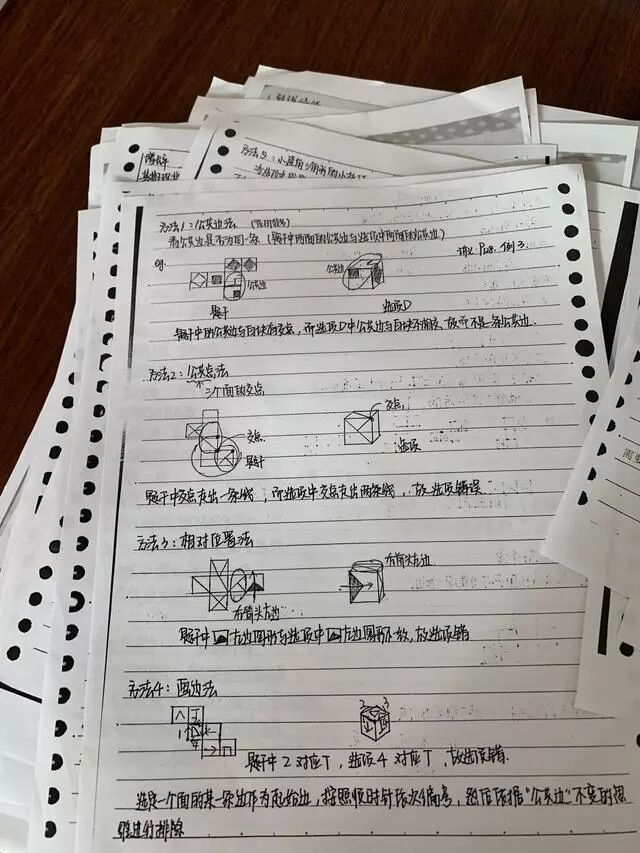 方法5：小
方法1：公共边法
看公共边是否为同一条（题干中两面的公共边与选项中两面的公共边）
例
讲义 P28. 例3.
公共边
公共边
题干
选项D
题干中的公共边与白块有交点，而选项D中公共边与白块不相交，故而不是一条公共边.
方法2：公共点法
三个面的交点
交点
交点
题干
选项
题干中交点走出一条线，而选项中交点走出两条线，故选项错误
方法3：相对位置法
右箭头左边
右箭头左边
题干中 左边图形与选项中 左边图形不一致，故选项错
方法4：画边法
题干中 2 对应T，选项 4 对应T，故选项错.
选定一个面的某一条边作为起始边，按照顺时针依次编号，然后依据“公共边”不变的思
维进行排除